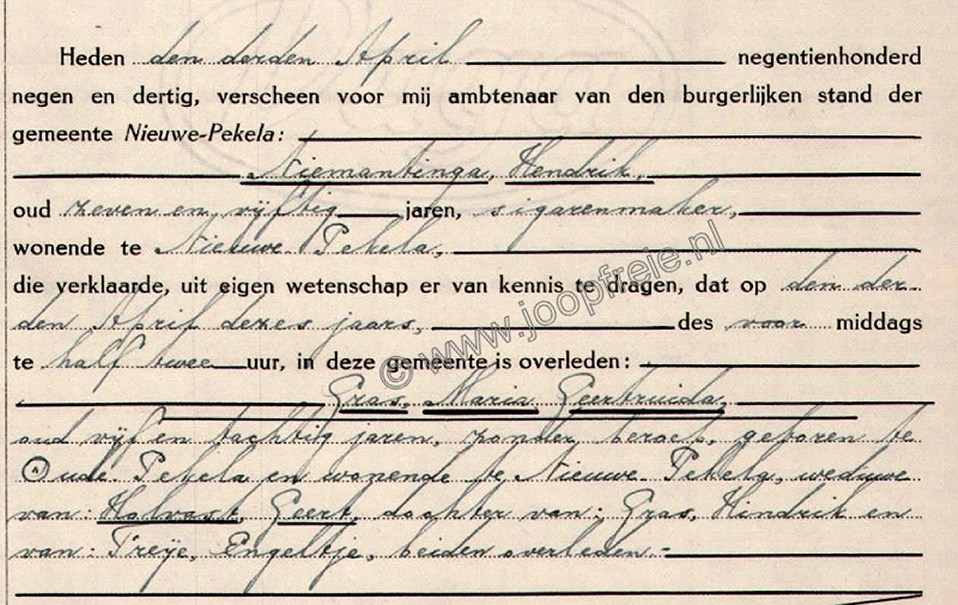 Heden den derden April negentienhonderd
negen en dertig, verscheen voor mij ambtenaar van den burgerlijken stand der
gemeente Nieuwe-Pekela:
Niemantinga, Hendrik,
oud zeven en vijftig jaren, sigarenmaker,
wonende te Nieuwe Pekela,
die verklaarde, uit eigen wetenschap er van kennis te dragen, dat op den der-
den April dezes jaars, des voor middags
te half twee uur, in deze gemeente is overleden:
Gras, Maria Geertruida,
oud vijf en tachtig jaren, zonder beroep, geboren te
Oude Pekela en wonende te Nieuwe Pekela, weduwe
van: Holvast, Geert, dochter van: Gras, Hindrik en
van: Freije, Engeltje, beiden overleden.-
© www.joopfreie.nl